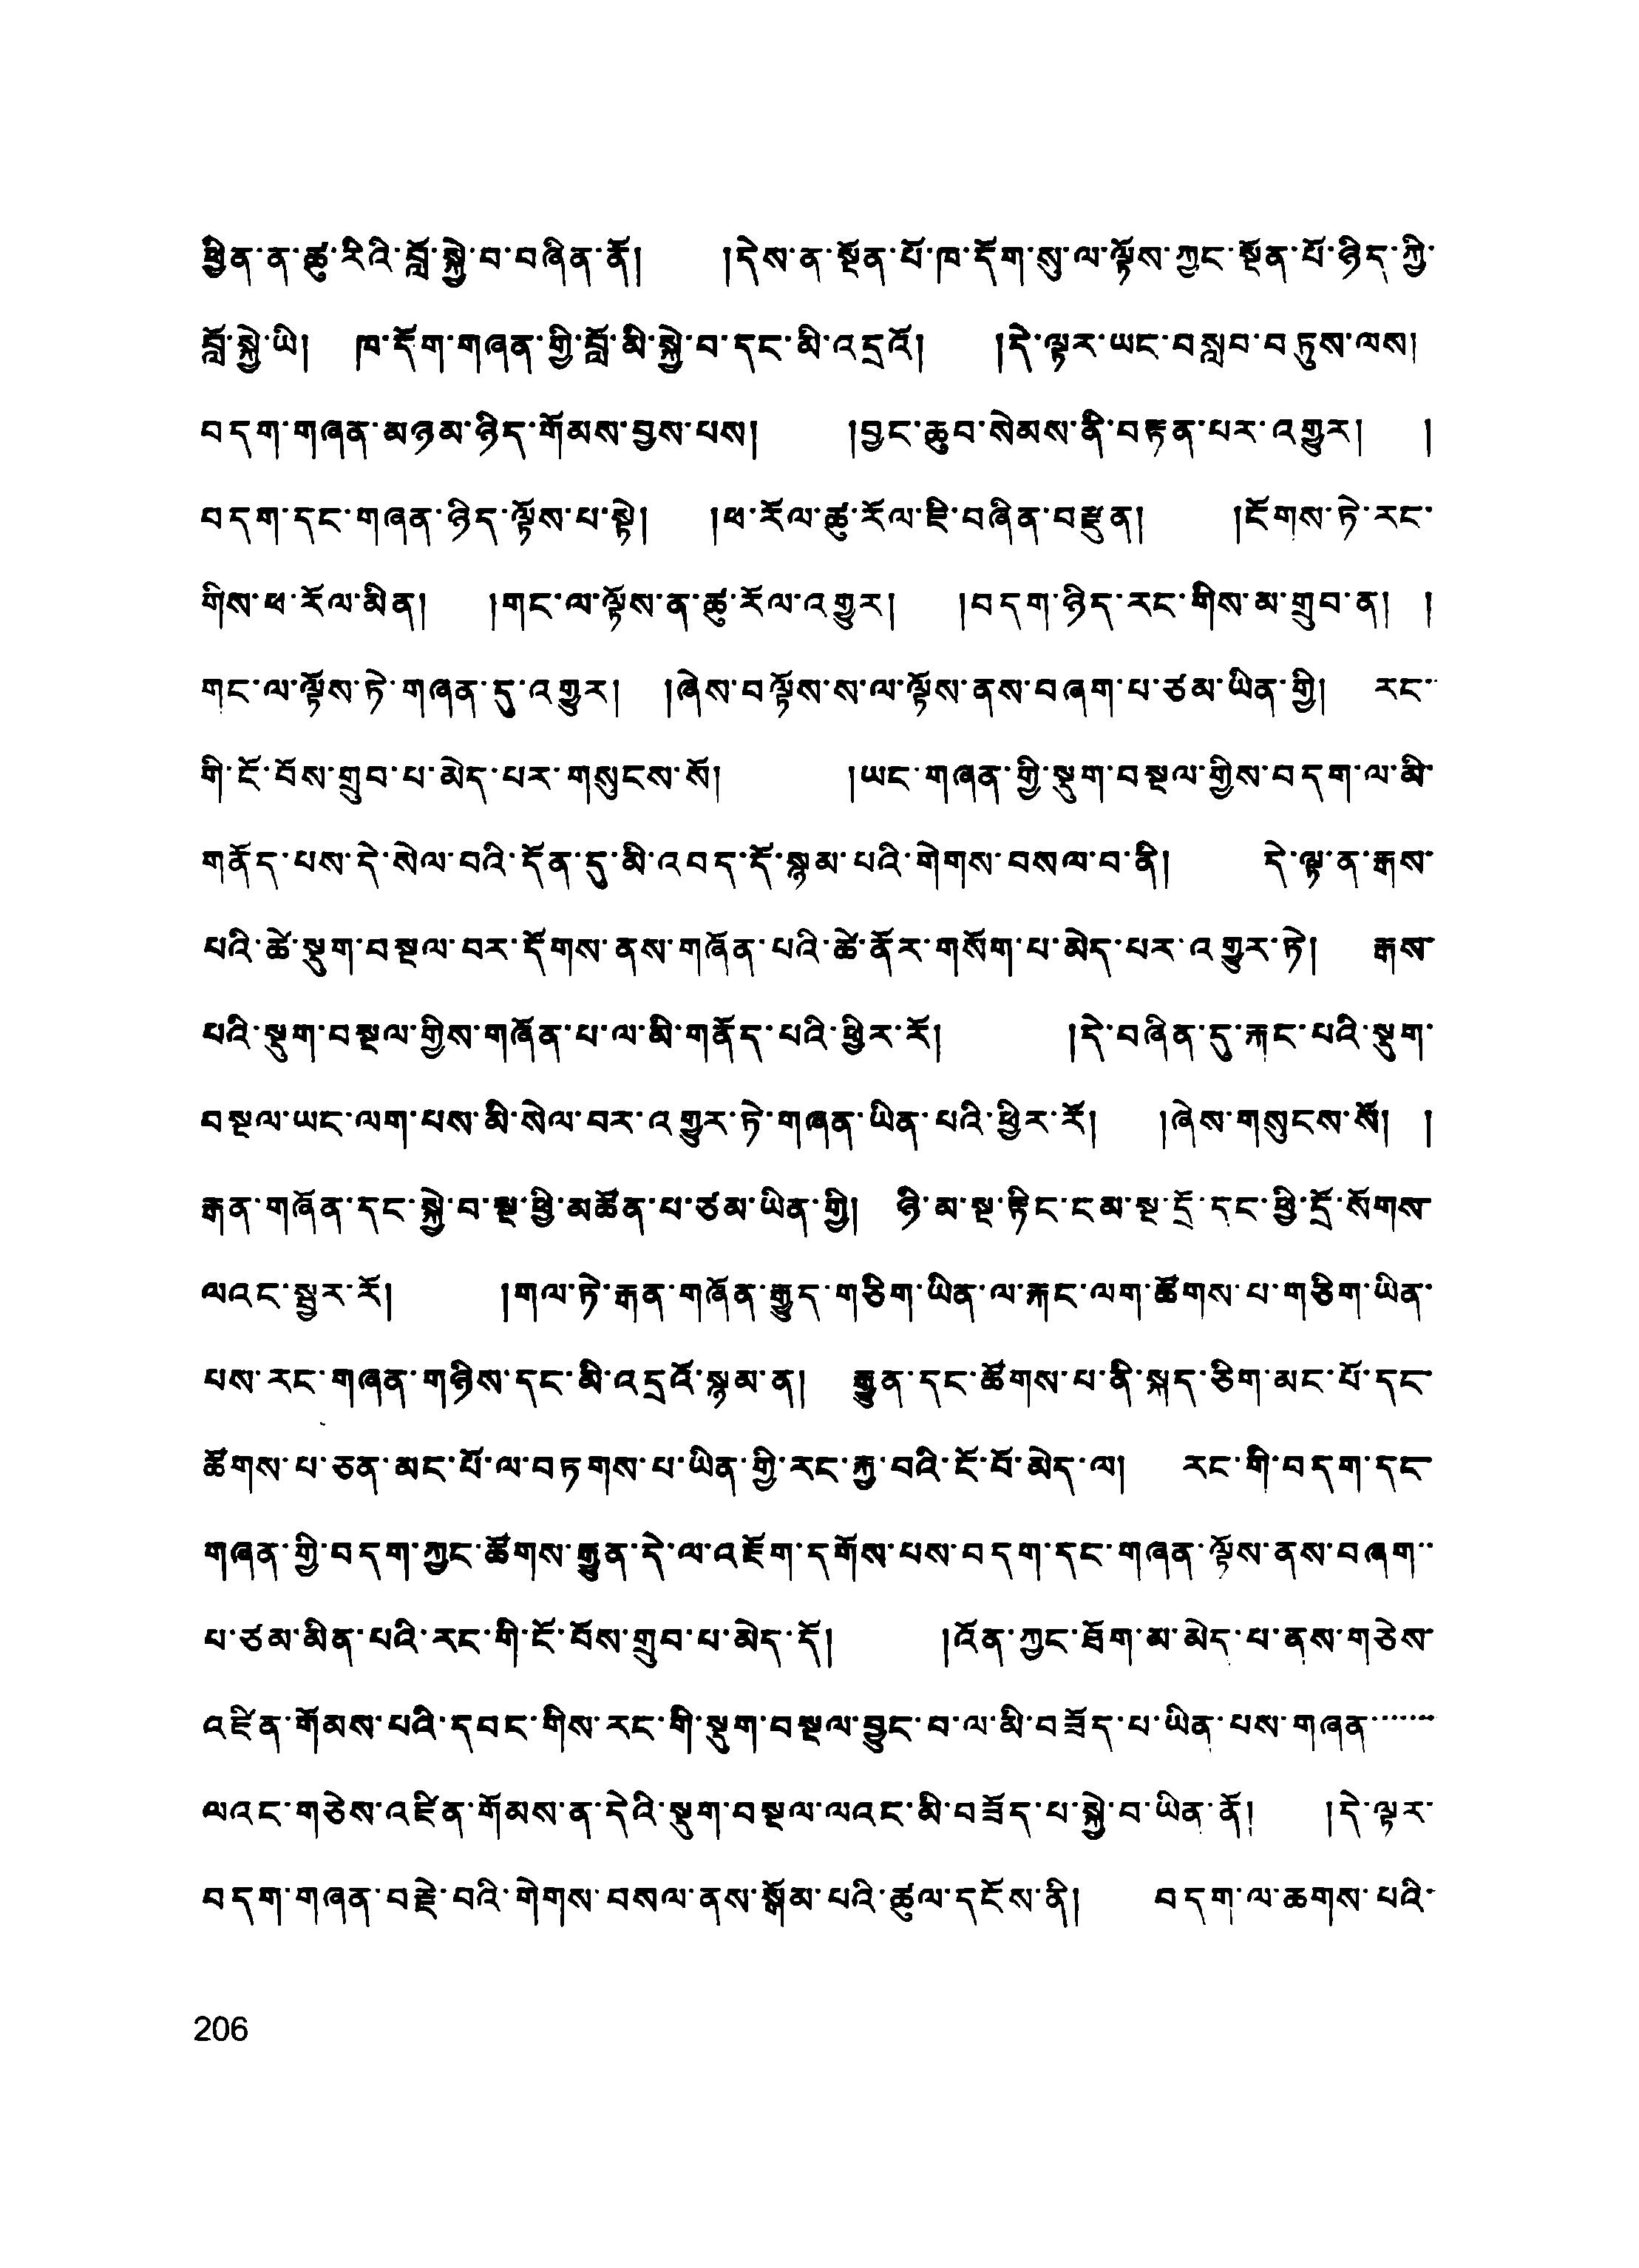 ཕྱིན་ན་ཚུ་རིའི་བློ་སྐྱེ་བ་བཞིན་ནོ། །དེས་ན་སྔོན་པོ་ཁ་དོག་སུ་ལ་ལྟོས་ཀྱང་སྔོན་པོ་ཉིད་ཀྱི་
བློ་སྐྱེ་ཡི། ཁ་དོག་གཞན་གྱི་བློ་མི་སྐྱེ་བ་དང་མི་འདྲའོ། །དེ་ལྟར་ཡང་བསླབ་བཏུས་ལས།
བདག་གཞན་མཉམ་ཉིད་གོམས་བྱས་པས། །བྱང་ཆུབ་སེམས་ནི་བརྟན་པར་འགྱུར། །
བདག་དང་གཞན་ཉིད་ལྟོས་པ་སྟེ། །ཕ་རོལ་ཚུ་རོལ་ཇི་བཞིན་བརྫུན། །ངོགས་ཏེ་རང་
གིས་ཕ་རོལ་མིན། །གང་ལ་ལྟོས་ན་ཚུ་རོལ་འགྱུར། །བདག་ཉིད་རང་གིས་མ་གྲུབ་ན། །
གང་ལ་ལྟོས་ཏེ་གཞན་དུ་འགྱུར། །ཞེས་བལྟོས་ས་ལ་ལྟོས་ནས་བཞག་པ་ཙམ་ཡིན་གྱི། རང་
གི་ངོ་བོས་གྲུབ་པ་མེད་པར་གསུངས་སོ། །ཡང་གཞན་གྱི་སྡུག་བསྔལ་གྱིས་བདག་ལ་མི་
གནོད་པས་དེ་སེལ་བའི་དོན་དུ་མི་འབད་དོ་སྙམ་པའི་གེགས་བསལ་བ་ནི། དེ་ལྟ་ན་རྒས་
པའི་ཚེ་སྡུག་བསྔལ་བར་དོགས་ནས་གཞོན་པའི་ཚེ་ནོར་གསོག་པ་མེད་པར་འགྱུར་ཏེ། རྒས་
པའི་སྡུག་བསྔལ་གྱིས་གཞོན་པ་ལ་མི་གནོད་པའི་ཕྱིར་རོ། །དེ་བཞིན་དུ་རྐང་པའི་སྡུག་
བསྔལ་ཡང་ལག་པས་མི་སེལ་བར་འགྱུར་ཏེ་གཞན་ཡིན་པའི་ཕྱིར་རོ། །ཞེས་གསུངས་སོ། །
རྒན་གཞོན་དང་སྐྱེ་བ་སྔ་ཕྱི་མཚོན་པ་ཙམ་ཡིན་གྱི། ཉི་མ་སྔ་རྟིང་ངམ་སྔ་དྲོ་དང་ཕྱི་དྲོ་སོགས་
ལའང་སྦྱར་རོ། །གལ་ཏེ་རྒན་གཞོན་རྒྱུད་གཅིག་ཡིན་ལ་རྐང་ལག་ཚོགས་པ་གཅིག་ཡིན་
པས་རང་གཞན་གཉིས་དང་མི་འདྲའོ་སྙམ་ན། རྒྱུན་དང་ཚོགས་པ་ནི་སྐད་ཅིག་མང་པོ་དང་
ཚོགས་པ་ཅན་མང་པོ་ལ་བཏགས་པ་ཡིན་གྱི་རང་རྐྱ་བའི་ངོ་བོ་མེད་ལ། རང་གི་བདག་དང་
གཞན་གྱི་བདག་ཀྱང་ཚོགས་རྒྱུན་དེ་ལ་འཇོག་དགོས་པས་བདག་དང་གཞན་ལྟོས་ནས་བཞག་
པ་ཙམ་མིན་པའི་རང་གི་ངོ་བོས་གྲུབ་པ་མེད་དོ། །འོན་ཀྱང་ཐོག་མ་མེད་པ་ནས་གཅེས་
འཛིན་གོམས་པའི་དབང་གིས་རང་གི་སྡུག་བསྔལ་བྱུང་བ་ལ་མི་བཟོད་པ་ཡིན་པས་གཞན་་་་་་
ལའང་གཅེས་འཛིན་གོམས་ན་དེའི་སྡུག་བསྔལ་ལའང་མི་བཟོད་པ་སྐྱེ་བ་ཡིན་ནོ། །དེ་ལྟར་
བདག་གཞན་བརྗེ་བའི་གེགས་བསལ་ནས་སྒོམ་པའི་ཚུལ་དངོས་ནི། བདག་ལ་ཆགས་པའི་
206